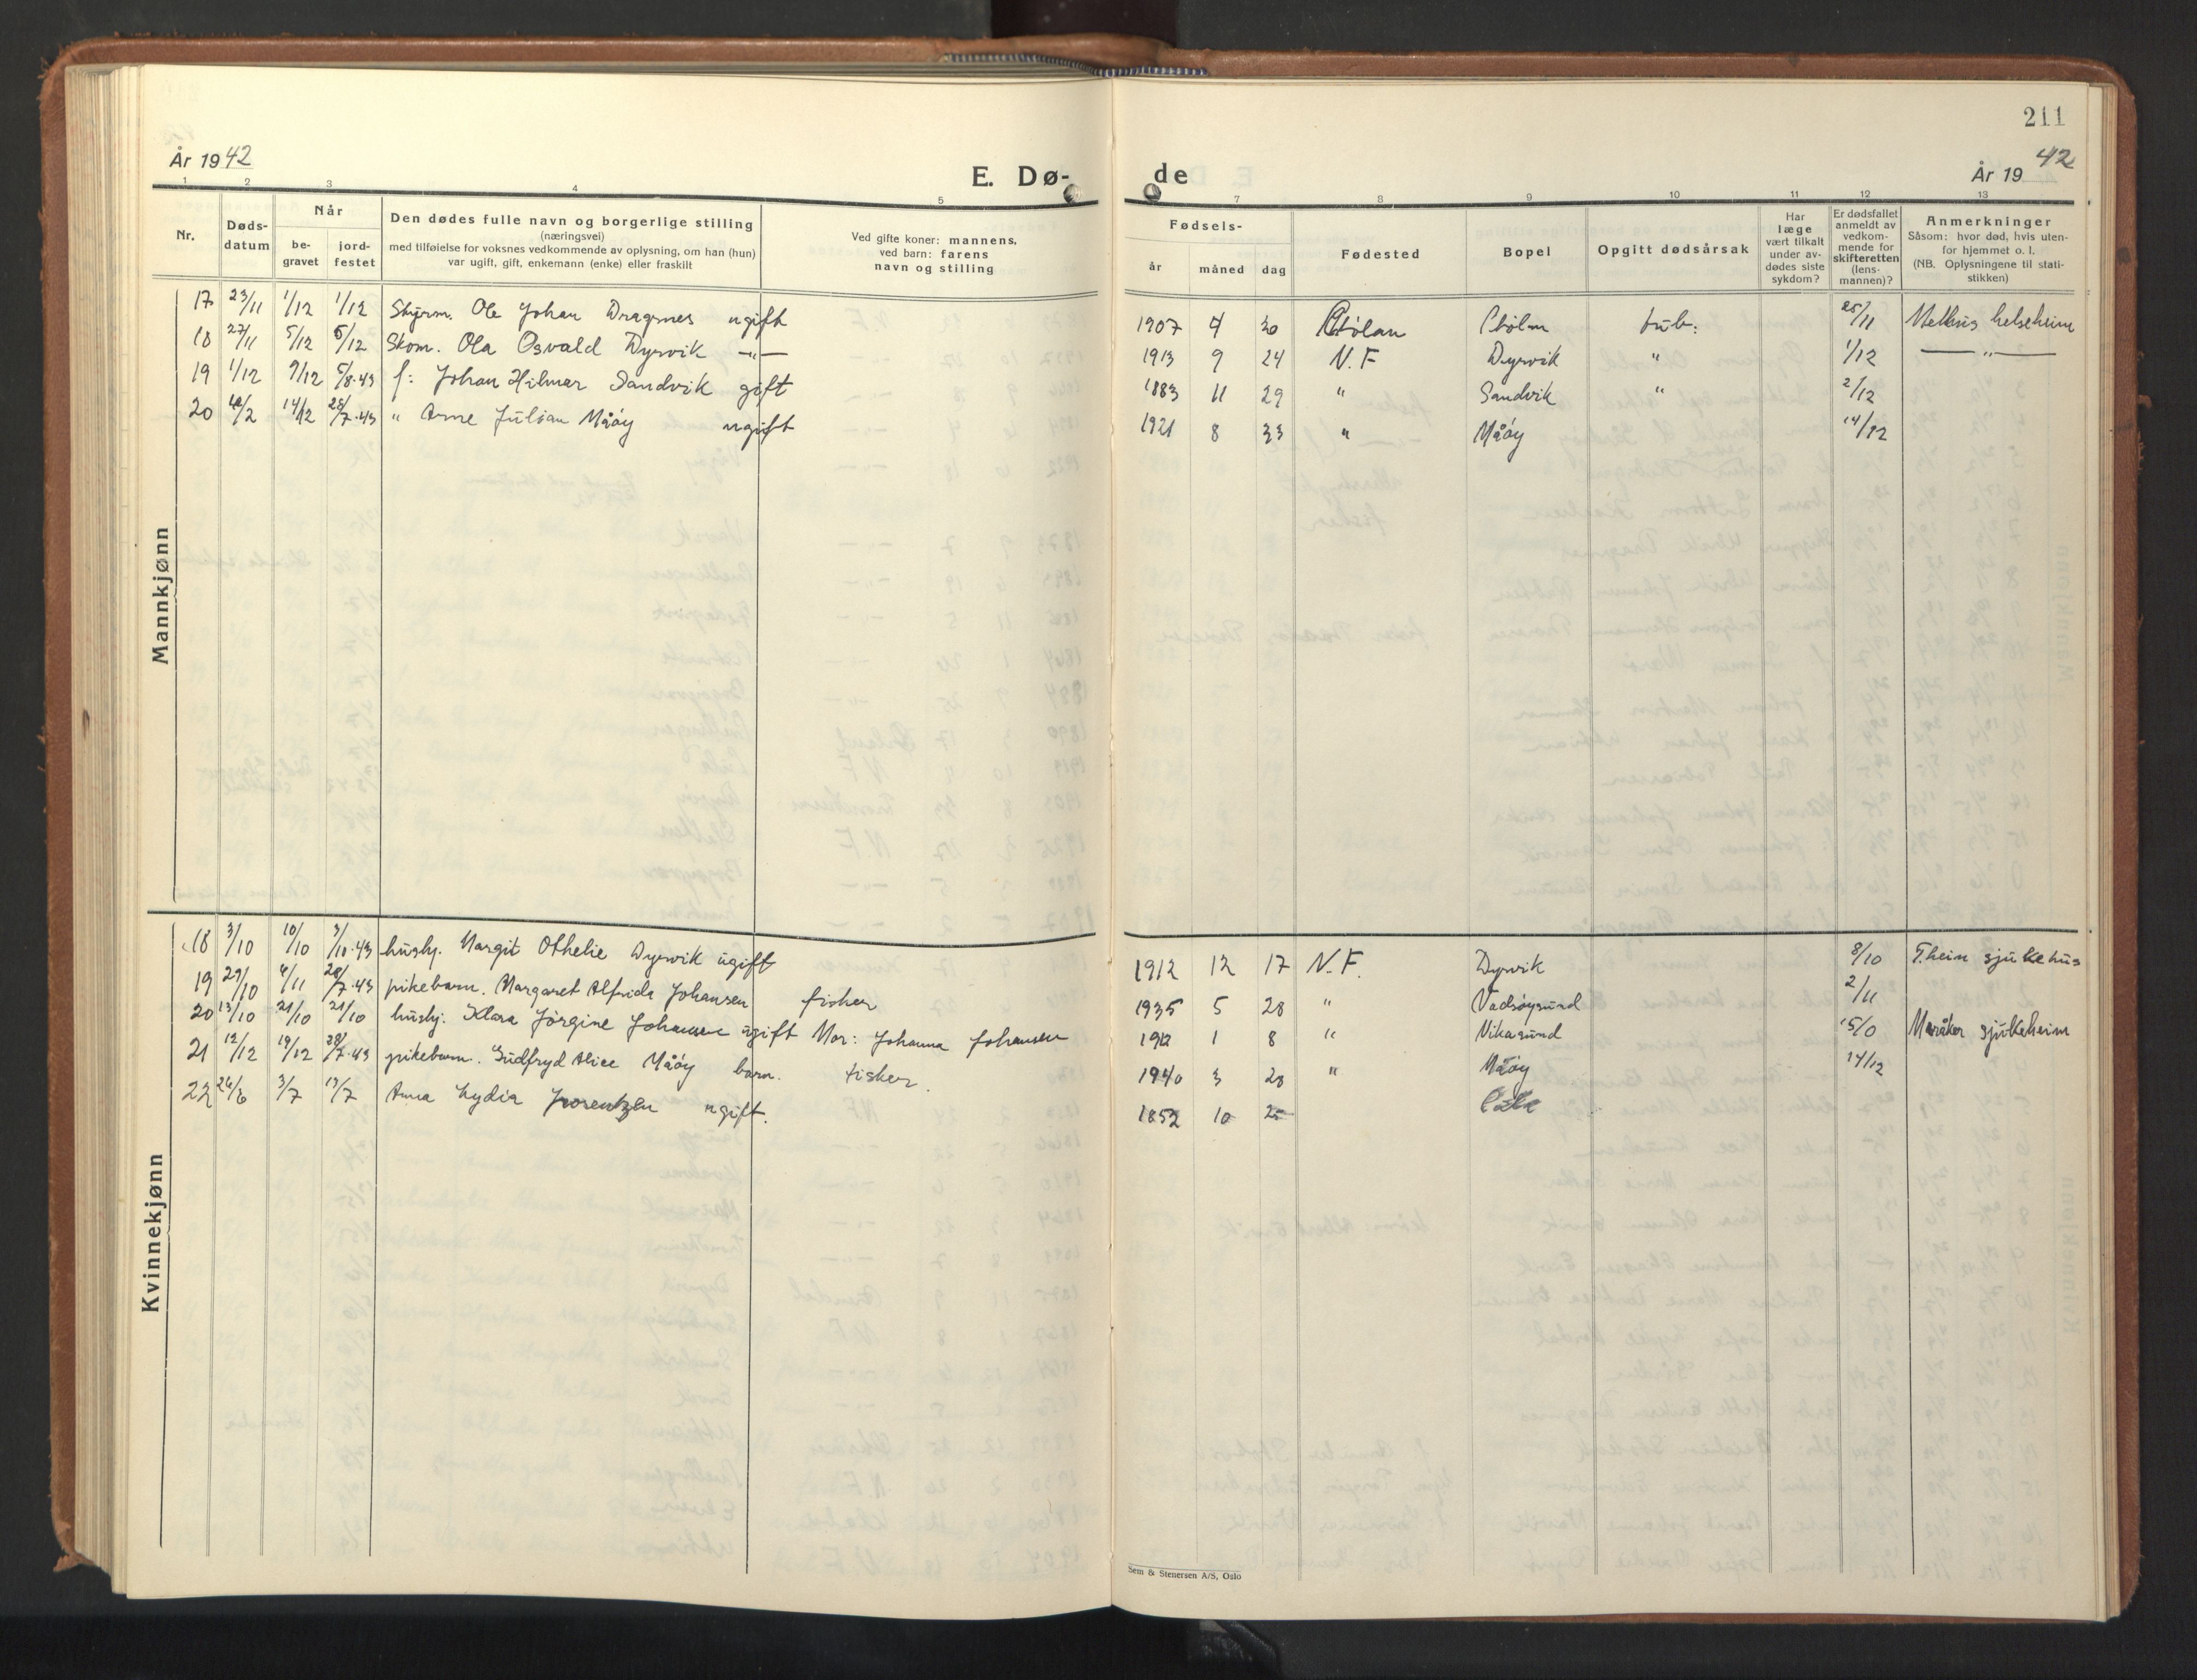 211
År 1942
E. Dø-
de
År 1942
1 2 3 4 5 7 8 9 10 11 12 13
Nr.
Døds-
datum
Når
be-
gravet
jord-
festet
Den dødes fulle navn og borgerlige stilling
(næringsvei)
med tilføielse for voksnes vedkommende av oplysning, om han (hun)
var ugift, gift, enkemann (enke) eller fraskilt
Ved gifte koner: mannens,
ved barn: farens
navn og stilling
Fødsels-
år måned dag
Fødested
Bopel
Opgitt dødsårsak
Har
læge
vært tilkalt
under av-
dødes siste
sykdom?
Er dødsfallet
anmeldt av
vedkom-
mende for
skifteretten
(lens-
mannen)?
Anmerkninger
Såsom: hvor død, hvis uten-
for hjemmet o. l.
(NB. Oplysningene til stati-
stikken)
Mannkjønn
17 23/11 1/12 1/12 Styrm. Ole Johan Dragsnes ugift 1907 4 30 tub: 25/11 Melhus helseheim
18 27/11 5/12 5/12 Skom. Ola Osvald Dyrvik —"— 1913 9 24 N.F Dyrvik " 1/12 —"—
19 1/12 9/12 5/8.43 f: Johan Hilmar Sandvik gift 1883 11 29 " Sandvik " 2/12
20 14/12 28/7.43 " Arne Julian Måøy ugift 1921 8 " Måøy 14/12
Kvinnekjønn
18 3/10 10/10 3/10.43 hushj. Margit Othelie Dyrvik ugift 1912 12 17 N.F. Dyrvik 8/10 T.heim sjukehus
19 29/10 4/11 28/7.43 pikebarn. Margaret Alfrida Johansen fisker 1935 5 28 " Vadsøysund 2/11
20 13/10 21/10 21/10 hushj. Klara Jörgine Johansen ugift Mor: Johanna Johansen 1 8 " Vikasund Meråker sjukeheim
21 12/12 19/12 28/7.43 pikebarn. Gudfryd Alice Måøy barn. fisker. 1940 3 28 " Måøy 14/12
22 24/6 3/7 13/7 Anna Lydia Lorentzen ugift. 1852 10 25
Sem & Stenersen A/S, Oslo